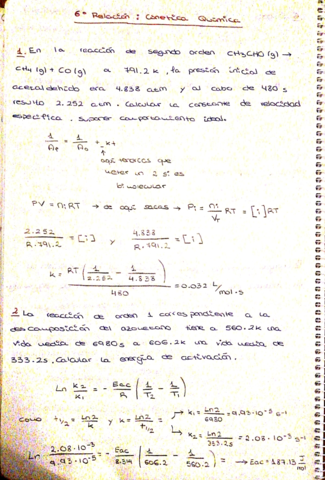 6ª Relación: Cinética Química
1. En la reacción de segundo orden CH₃CHO (g) →
CH₄ (g) + CO (g) a 791.2 K, la presión inicial de
acetaldehído era 4.838 atm y al cabo de 480 s
resultó 2.252 atm. Calcular la constante de velocidad
específica. Suponer comportamiento ideal.
1/At = 1/A₀ + kt
aquí tendrías que
meter un 2 si es
bimolecular
PV = niRT → de aquí sacas → Pi = ni/VT RT = [i]RT
2.252/R.791.2 = [i] y 4.838/R.791.2 = [i]
k = RT(1/2.252 - 1/4.838)/480 = 0.032 L/mol·s
2. La reacción de orden 1 correspondiente a la
descomposición del azometano tiene a 560.2K una
vida media de 6980s a 606.2K una vida media de
333.2s. Calcular la energía de activación.
Ln K₂/K₁ = - Eac/R (1/T₂ - 1/T₁)
como t₁/₂ = Ln2/K y k = Ln2/t₁/₂ → k₁ = Ln2/6980 = 9.93·10⁻⁵ s⁻¹
→ k₂ = Ln2/333.2s = 2.08·10⁻³ s⁻¹
Ln 2.08·10⁻³/9.93·10⁻⁵ = - Eac/8.314 (1/606.2 - 1/560.2) = → Eac = 187.13 J/mol